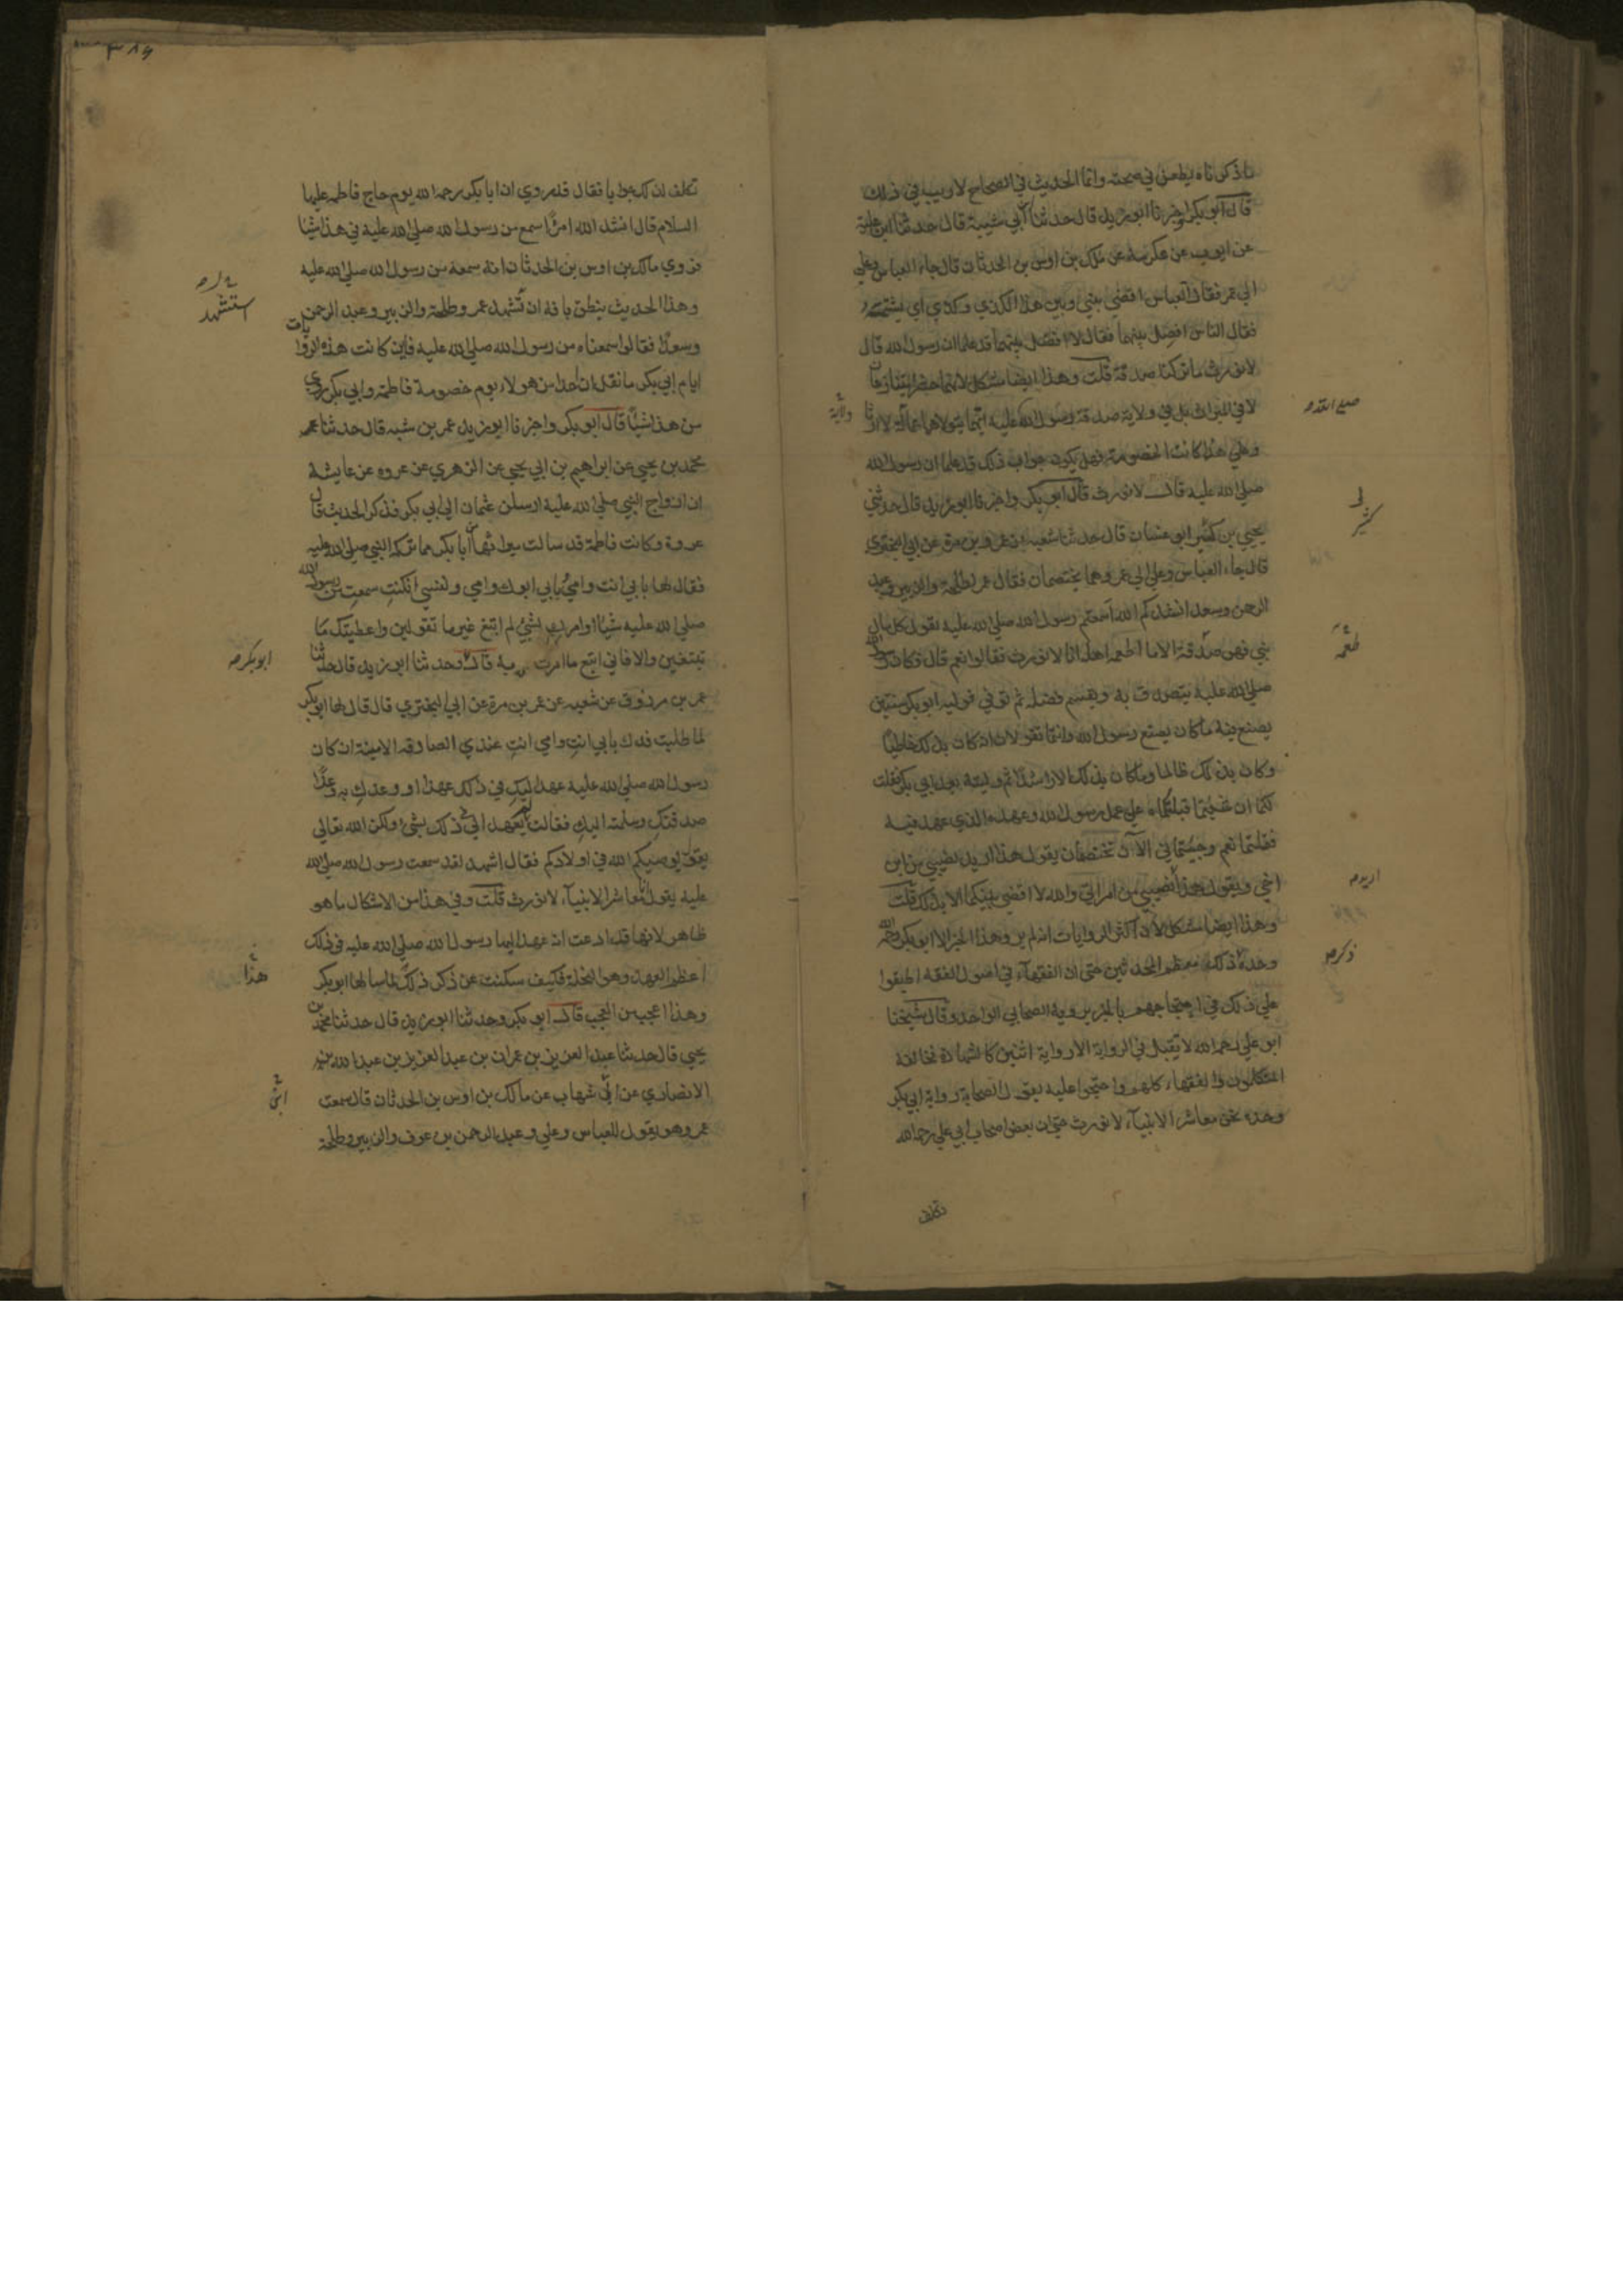 ما ذكرناه يطعن في صحته وانما الحديث في الصحاح لا ريب في ذلك
قال ابو بكر واخبرنا ابو زيد قال حدثنا ابن ابي شيبة قال حدثنا ابن علية
عن ايوب عن عكرمة عن مالك بن اوس بن الحدثان قال جاء العباس وعلي
الي عمر فقال العباس اقض بيني وبين هذا الكذي وكذي اي يشتمه
فقال الناس افصل بينهما فقال لا افصل بينهما قد علما ان رسول الله قال
لا نورث ما تركنا صدقة قلت وهذا ايضا مشكل لانهما حضرا يتنازعان
لا في الميراث بل في ولاية صدقة رسول الله عليه ايهما يتولاها ولاية لا ارثا
وعلي هذا كانت الخصومة فهل يكون جواب ذلك قد علما ان رسول الله
صلي الله عليه قال لا نورث قال ابو بكر واخبرنا ابو زيد قال حدثني
يحيي بن كثير ابو غسان قال حدثنا شعبة عن عمرو بن مرة عن ابي البختري
قال جاء العباس وعلي الي عمر وهما يختصمان فقال عمر لطلحة والزبير وعبد
الرحمن وسعد انشدكم الله اسمعتم رسول الله صلي الله عليه يقول كل مال
نبي فهو صدقة الا ما اطعمه اهله انا لا نورث فقالوا نعم قال فكان رسول الله
صلي الله عليه يتصدق به ويقسم فضله ثم توفي فوليه ابو بكر سنتين
يصنع فيه ما كان يصنع رسول الله وانتما تقولان انه كان بذلك خاطئا
وكان بذلك ظالما وما كان بذلك الا راشدا ثم وليته بعد ابي بكر فقلت
لكما ان شئتما قبلتماه علي عمل رسول الله وعهده الذي عهد فيه
فقلتما نعم وجئتماني الآن تختصمان يقول هذا اريد نصيبي من ابن
اخي ويقول هذا اريد نصيبي من امراتي والله لا اقضي بينكما الا بذلك قلت
وهذا ايضا مشكل لان اكثر الروايات انه لم يرو هذا الخبر الا ابو بكر رحمه الله
وحده ذكر ذلك معظم المحدثين حتي ان الفقهاء في اصول الفقه اطبقوا
علي ذلك في احتجاجهم بالخبر يرويه الصحابي الواحد وقال شيخنا
ابو علي رحمه الله لا تقبل في الرواية الا رواية اثنين كالشهادة فخالفه
المتكلمون والفقهاء كلهم واحتجوا عليه بقول الصحابة رواية ابي بكر
وحده نحن معاشر الانبياء لا نورث حتي ان بعض اصحاب ابي علي رحمه الله
تكلف
ولاية
كثير
طعمه
اريد صح
ذكر صح
٣٨٩
تكلف لذلك جوابا فقال قد روي ان ابا بكر رحمه الله يوم حاج فاطمة عليها
السلام قال انشد الله امرأ سمع من رسول الله صلي الله عليه في هذا شيئا
فروي مالك بن اوس بن الحدثان انه سمعه من رسول الله صلي الله عليه
وهذا الحديث ينطق بانه استشهد عمر وطلحة والزبير وعبد الرحمن
وسعدا فقالوا سمعناه من رسول الله صلي الله عليه فاين كانت هذه الروايات
ايام ابي بكر ما نقل ان احدا من هولاء يوم خصومة فاطمة وابي بكر روي
من هذا شيئا قال ابو بكر واخبرنا ابو زيد عمر بن شبه قال حدثنا
محمد بن يحيي عن ابراهيم بن ابي يحيي عن الزهري عن عروه عن عايشة
ان ازواج النبي صلي الله عليه ارسلن عثمان الي ابي بكر فذكر الحديث قال
عروة وكانت فاطمة قد سالت ميراثها من ابا بكر مما تركه النبي صلي الله عليه
فقال لها بابي انت وامي بابي ابوك وامي ونفسي ان كنت سمعت من رسول الله
صلي الله عليه شيئا او امرك بشيء لم اتبع غير ما تقولين واعطيتك ما
تبتغين والا فاني اتبع ما امرت به قال وحدثنا ابو زيد قال حدثنا
عمرو بن مرزوق عن شعبه عن عمرو بن مرة عن ابي البختري قال قال لها ابو بكر
لما طلبت فدك بابي انت وامي انت عندي الصادقه الامينة ان كان
رسول الله صلي الله عليه عهد اليك في ذلك عهدا او وعدك به وعدا
صدقتك وسلمت اليك فقالت لم يعهد الي في ذلك بشيء ولكن الله تعالي
يقول يوصيكم الله في اولادكم فقال اشهد لقد سمعت رسول الله صلي الله
عليه يقول انا معاشر الانبياء لا نورث قلت وفي هذا من الاشكال ما هو
ظاهر لانها قد ادعت انه عهد اليها رسول الله صلي الله عليه في ذلك
اعظم العهد وهو النحلة فكيف سكتت عن ذكر ذلك لما سالها ابو بكر
وهذا اعجب من العجب قال ابو بكر وحدثنا ابو زيد قال حدثنا محمد بن
يحيي قال حدثنا عبد العزيز بن عمران بن عبد العزيز بن عبد الله
الانصاري عن ابن شهاب عن مالك بن اوس بن الحدثان قال سمعت
عمر وهو يقول للعباس وعلي وعبد الرحمن بن عوف والزبير وطلحة
استشهد
ابو بكر صح
هذا
ابن